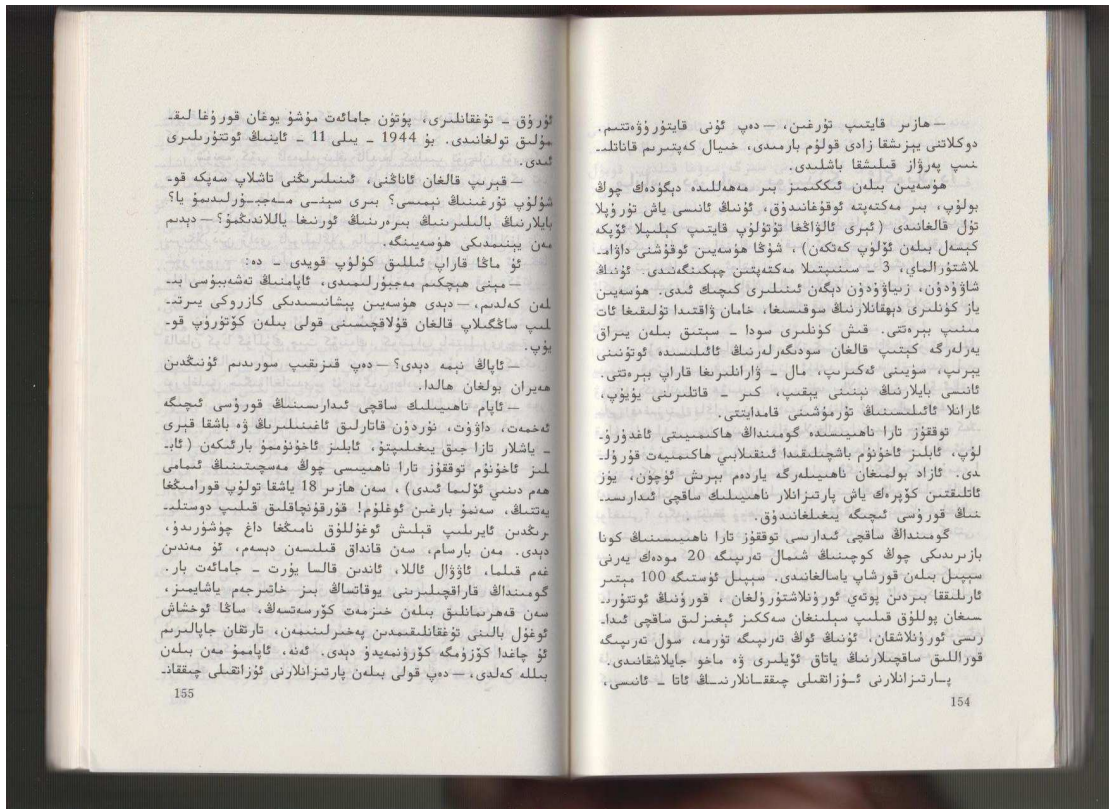 — ھازىر قايتىپ تۇرغىن، — دەپ ئۇنى قايتۇرۇۋەتتىم.
دوكلاتنى يېزىشقا زادى قولۇم بارمىدى، خىيال كەپتىرىم قاناتلـ
نىپ پەرۋاز قىلىشقا باشلىدى.
ھۈسەيىن بىلەن ئىككىمىز بىر مەھەللىدە دېگۈدەك چوڭ
بولۇپ، بىر مەكتەپتە ئوقۇغانىدۇق، ئۇنىڭ ئانىسى ياش تۇرۇپلا
تۇل قالغانىدى (ئېرى ئالۋاڭغا تۇتۇلۇپ قايتىپ كېلىپلا ئۆپكە
كېسەل بىلەن ئۆلۈپ كەتكەن)، شۇڭا ھۈسەيىن ئوقۇشنى داۋامـ
لاشتۇرالماي، 3 ـ سىنىپتىلا مەكتەپتىن چېكىنگەنىدى. ئۇنىڭ
شاۋۇدۇن، زىياۋۇدۇن دېگەن ئىنىلىرى كىچىك ئىدى. ھۈسەيىن
ياز كۈنلىرى دېھقانلارنىڭ سوقىسىغا، خامان ۋاقتىدا تۇلىقىغا ئات
مىنىپ بېرەتتى. قىش كۈنلىرى سودا ـ سېتىق بىلەن يىراق
يەرلەرگە كېتىپ قالغان سودىگەرلەرنىڭ ئائىلىسىدە ئوتۇنىنى
يېرىپ، سۈيىنى ئەكىرىپ، مال ـ ۋارانلىرىغا قاراپ بېرەتتى.
ئانىسى بايلارنىڭ نېنىنى يېقىپ، كىر ـ قاتلىرىنى يۇيۇپ،
ئارانلا ئائىلىسىنىڭ تۇرمۇشىنى قامدايتتى.
توققۇز تارا ناھىيىسىدە گومىنداڭ ھاكىمىيىتى ئاغدۇرۇـ
لۇپ، ئابلىز ئاخۇنۇم باشچىلىقىدا ئىنقىلابىي ھاكىمىيەت قۇرۇلـ
دى. ئازاد بولمىغان ناھىيىلەرگە ياردەم بېرىش ئۈچۈن، يۈز
ئاتلىقتىن كۆپرەك ياش پارتىزانلار ناھىيىلىك ساقچى ئىدارىسىـ
نىڭ قوروسى ئىچىگە يىغىلغانىدۇق.
گومىنداڭ ساقچى ئىدارىسى توققۇز تارا ناھىيىسىنىڭ كونا
بازىرىدىكى چوڭ كوچىنىڭ شىمال تەرىپىگە 20 مودەك يەرنى
سېپىل بىلەن قورشاپ ياسالغانىدى. سېپىل ئۈستىگە 100 مېتىر
ئارىلىققا بىردىن پوتەي ئورۇنلاشتۇرۇلغان، قورۇنىڭ ئوتتۇرىـ
سىغان پوللۇق قىلىپ سېلىنغان سەككىز ئېغىزلىق ساقچى ئىداـ
رىسى ئورۇنلاشقان، ئۇنىڭ ئوڭ تەرىپىگە تۈرمە، سول تەرىپىگە
قوراللىق ساقچىلارنىڭ ياتاق ئۆيلىرى ۋە ماخو جايلاشقانىدى.
پـارتىزانلارنى ئـۇزاتقىلى چىققـانلارنىـڭ ئاتا ـ ئانىسى،
154
ئۇرۇق ـ تۇغقانلىرى، پۈتۈن جامائەت مۇشۇ يوغان قورۇغا لىقـ
مۇلىق تولغانىدى. بۇ 1944 ـ يىلى 11 ـ ئاينىڭ ئوتتۇرىلىرى
ئىدى.
— قېرىپ قالغان ئاناڭنى، ئىنىلىرىڭنى تاشلاپ سەپكە قوـ
شۇلۇپ تۇرغىنىڭ نېمىسى؟ بىرى سېنـى مـەجبـۇرلىدىمۇ يا؟
بايلارنىڭ بالىلىرىنىڭ بىرەرىنىڭ ئورنىغا ياللاندىڭمۇ؟ — دېدىم
مەن يېنىمدىكى ھۈسەيىنگە.
ئۇ ماڭا قاراپ ئىللىق كۈلۈپ قويدى ـ دە:
— مېنى ھېچكىم مەجبۇرلىمىدى، ئاپامنىڭ تەشەببۇسى بىـ
لەن كەلدىم، — دېدى ھۈسەيىن پېشانىسىدىكى كازروكى يىرتىـ
لىپ ساڭگىلاپ قالغان قۇلاقچىسىنى قولى بىلەن كۆتۈرۈپ قوـ
يۇپ.
— ئاپاڭ نېمە دېدى؟ — دەپ قىزىقىپ سورىدىم ئۇنىڭدىن
ھەيران بولغان ھالدا.
— ئاپام ناھىيىلىك ساقچى ئىدارىسىنىڭ قوروسى ئىچىگە
ئەخمەت، داۋۇت، نۇردۇن قاتارلىق ئاغىنىلىرىڭ ۋە باشقا قېرى
ـ ياشلار تازا جىق يىغىلىپتۇ، ئابلىز ئاخۇنۇممۇ بارئىكەن (ئابـ
لىز ئاخۇنۇم توققۇز تارا ناھىيىسى چوڭ مەسچىتىنىڭ ئىمامى
ھەم دىنىي ئۆلىما ئىدى)، سەن ھازىر 18 ياشقا تولۇپ قورامىڭغا
يەتتىڭ، سەنمۇ بارغىن ئوغلۇم! قورقۇنچاقلىق قىلىپ دوستلىـ
رىڭدىن ئايرىلىپ قېلىش ئوغۇللۇق نامىڭغا داغ چۈشۈرىدۇ،
دېدى. مەن بارسام، سەن قانداق قىلىسەن دېسەم، ئۇ مەندىن
غەم قىلما، ئاۋۋال ئاللا، ئاندىن قالسا يۇرت ـ جامائەت بار.
گومىنداڭ قاراقچىلىرىنى يوقاتساڭ بىز خاتىرجەم ياشايمىز،
سەن قەھرىمانلىق بىلەن خىزمەت كۆرسەتسەڭ، ساڭا ئوخشاش
ئوغۇل بالىنى تۇغقانلىقىمدىن پەخىرلىنىمەن، تارتقان جاپالىرىم
ئۇ چاغدا كۆزۈمگە كۆرۈنمەيدۇ دېدى. ئەنە، ئاپاممۇ مەن بىلەن
بىللە كەلدى، — دەپ قولى بىلەن پارتىزانلارنى ئۇزاتقىلى چىققانـ
155